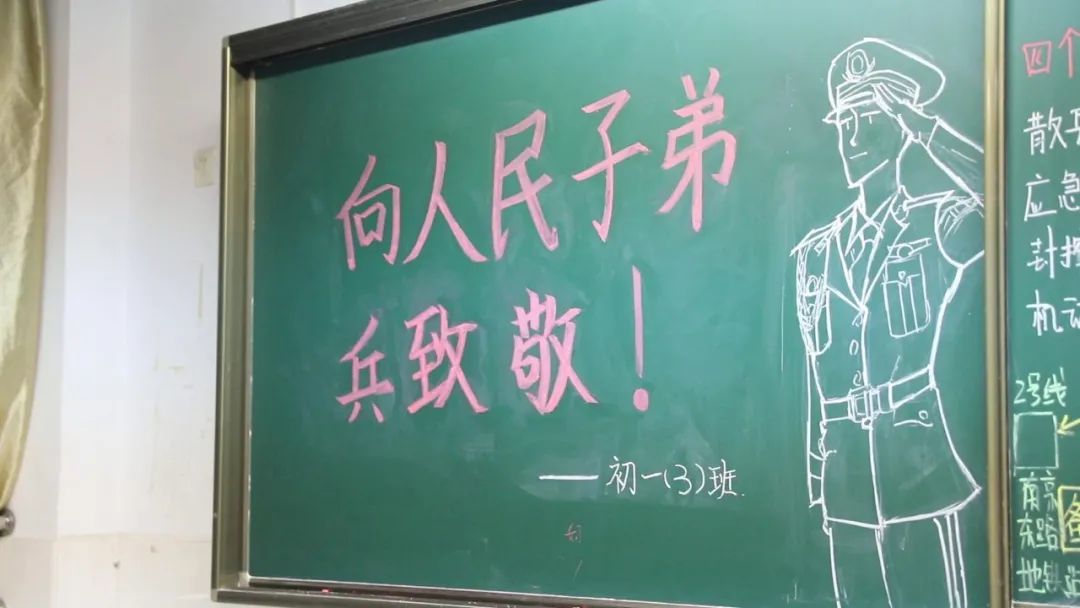 向人民子弟
兵致敬！
——初一(3)班
四个
散
应急
封控
机动
2号线
南京
东路
地铁站